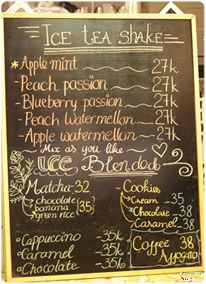 ICE TEA SHAKE
*Apple mint 27k
-Peach passion 27k
-Blueberry passion 27k
-Peach Watermellon 27k
-Apple watermellon 27k
Mix as you like
ICE Blended
Matcha-32
chocolate
banana (35)
green rice
-Cappuccino -35k
-Caramel -35k
-Chocolate -35k
-Cookies
Cream -35
Chocolate 38
Caramel 38
Coffee 38
Affogato